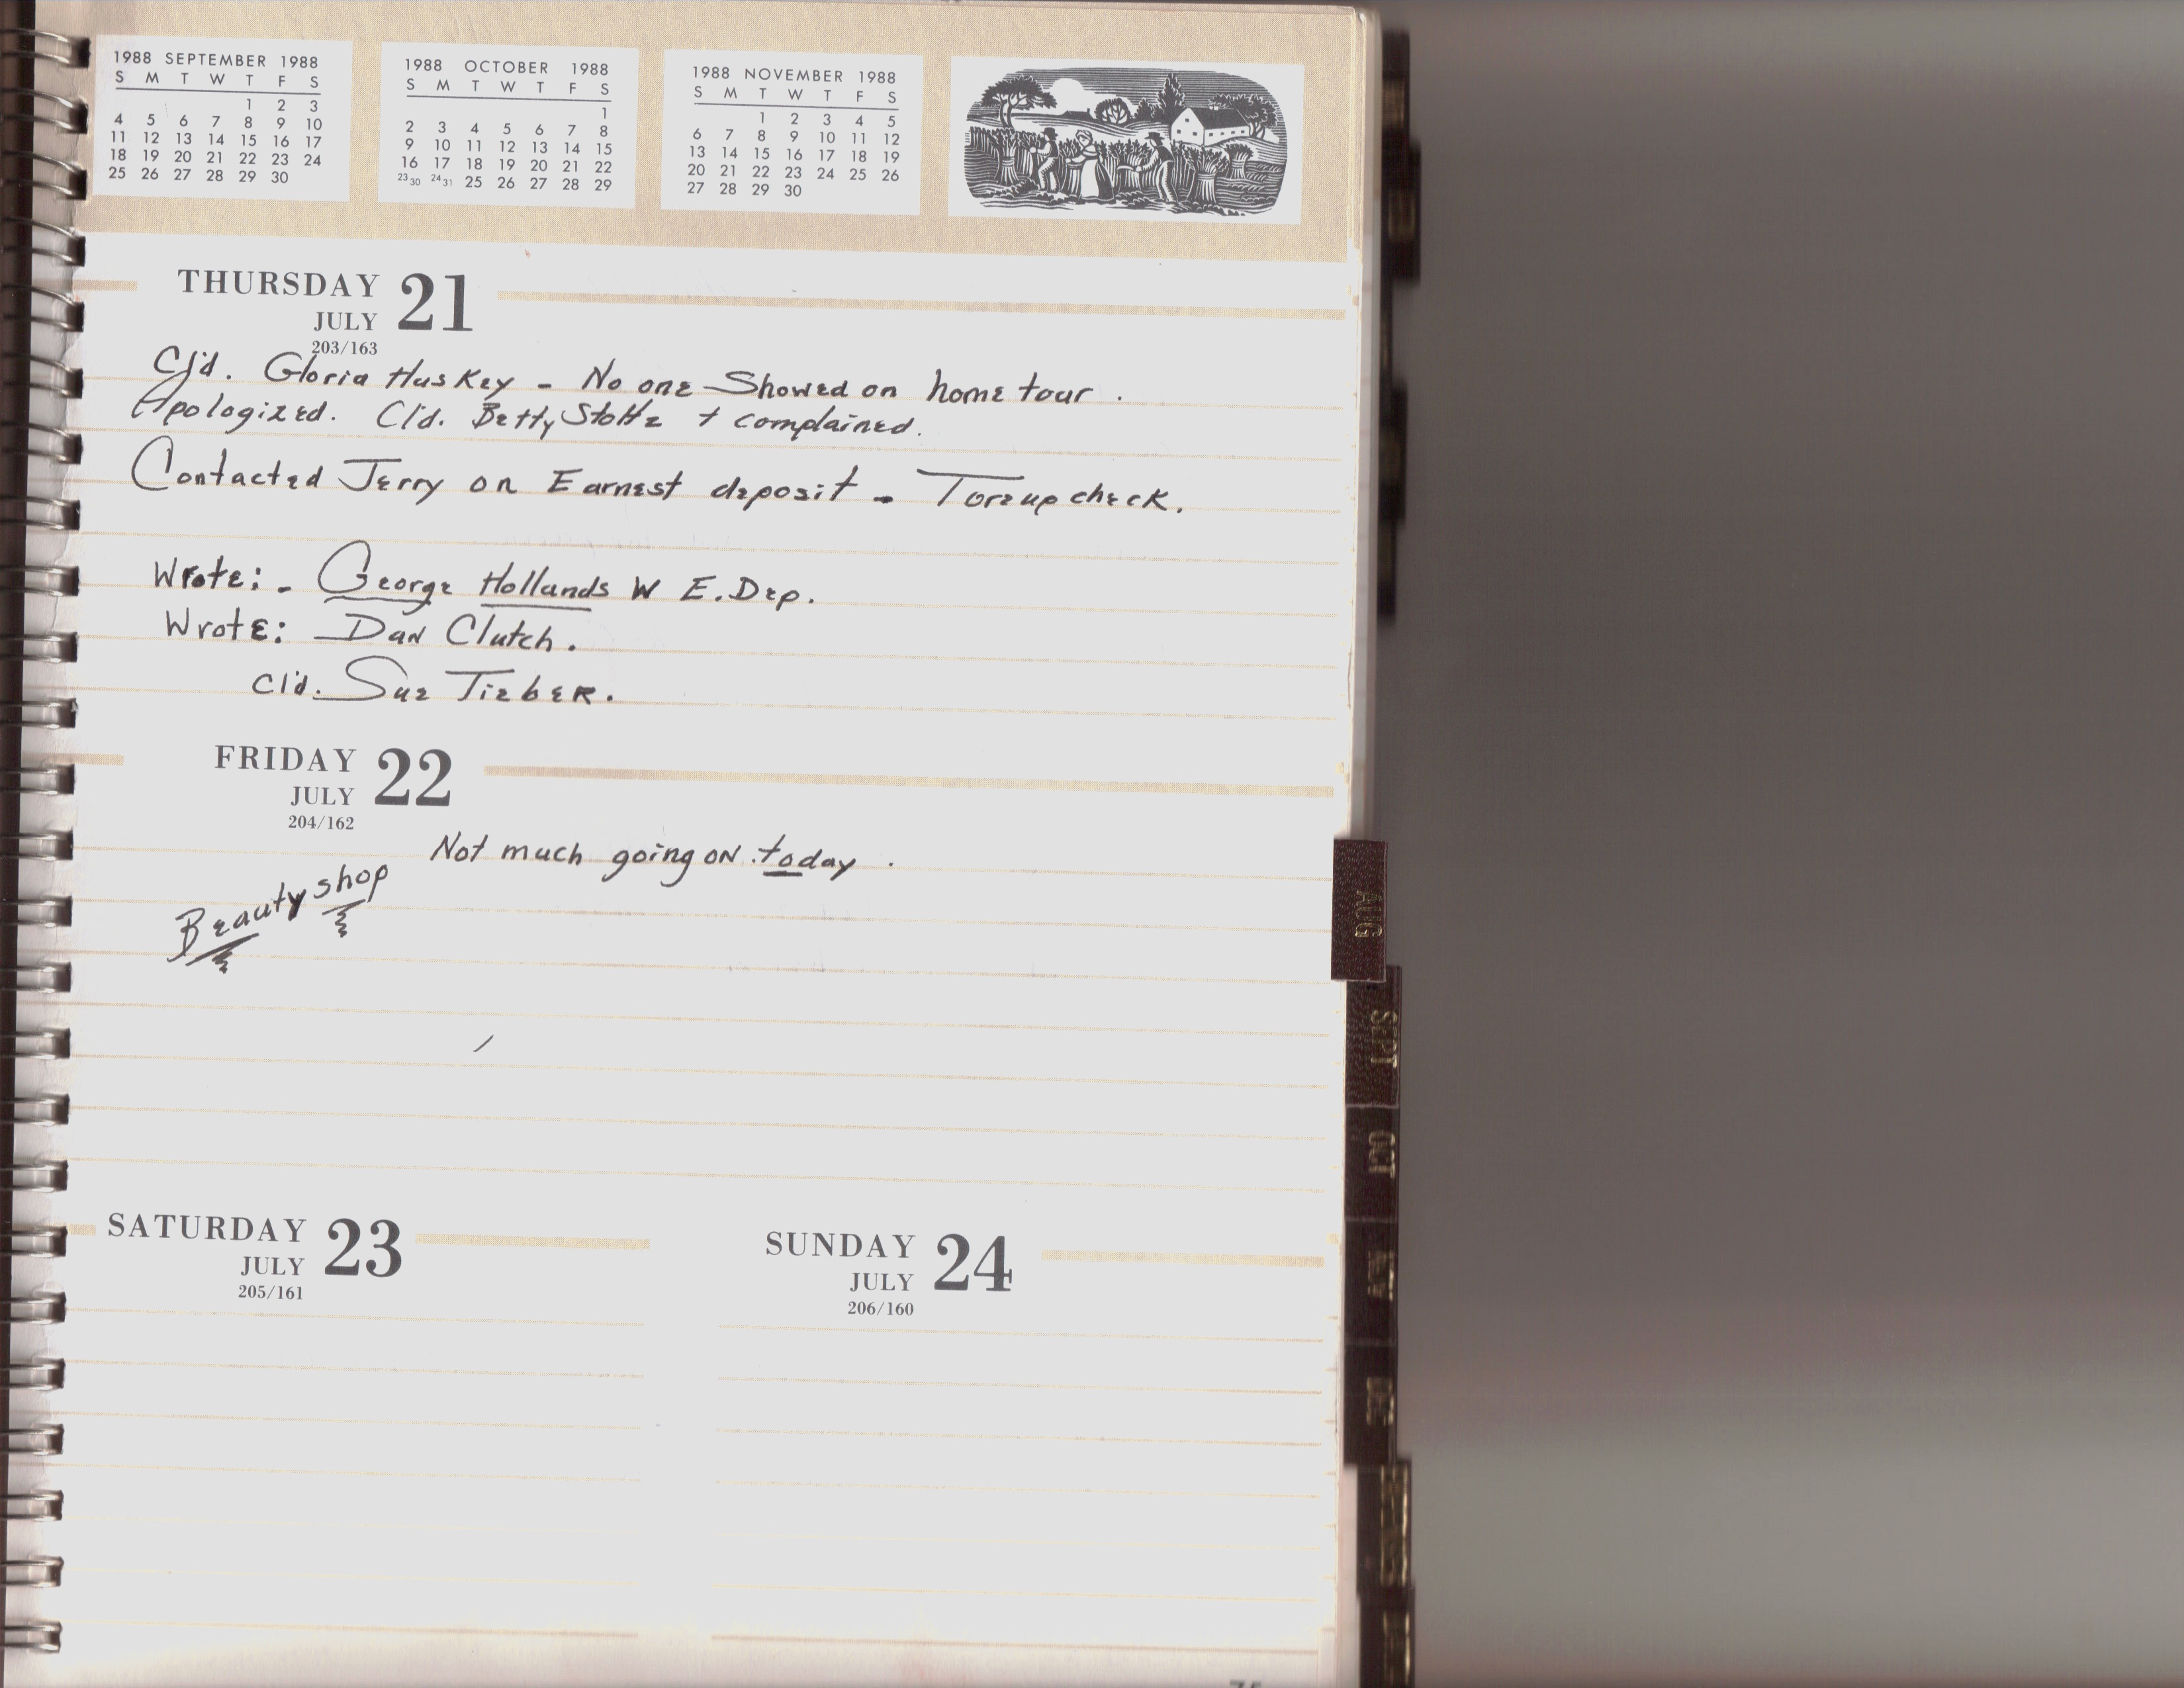 1988 SEPTEMBER 1988
S M T W T F S
1 2 3
4 5 6 7 8 9 10
11 12 13 14 15 16 17
18 19 20 21 22 23 24
25 26 27 28 29 30
1988 OCTOBER 1988
S M T W T F S
1
2 3 4 5 6 7 8
9 10 11 12 13 14 15
16 17 18 19 20 21 22
23 30 24 31 25 26 27 28 29
1988 NOVEMBER 1988
S M T W T F S
1 2 3 4 5
6 7 8 9 10 11 12
13 14 15 16 17 18 19
20 21 22 23 24 25 26
27 28 29 30
THURSDAY 21
JULY
203/163
Cl'd. Gloria Huskey - No one Showed on home tour.
Apologized. Cl'd. Betty Stoltz + complained.
Contacted Jerry on Earnest deposit - Tore up check.
Wrote: - George Hollands W E. Dep.
Wrote: Dan Clutch.
Cl'd. Sue Tieber.
FRIDAY 22
JULY
204/162
Not much going on today.
Beauty shop
AUG
SEPT
OCT
SATURDAY 23
JULY
205/161
SUNDAY 24
JULY
206/160